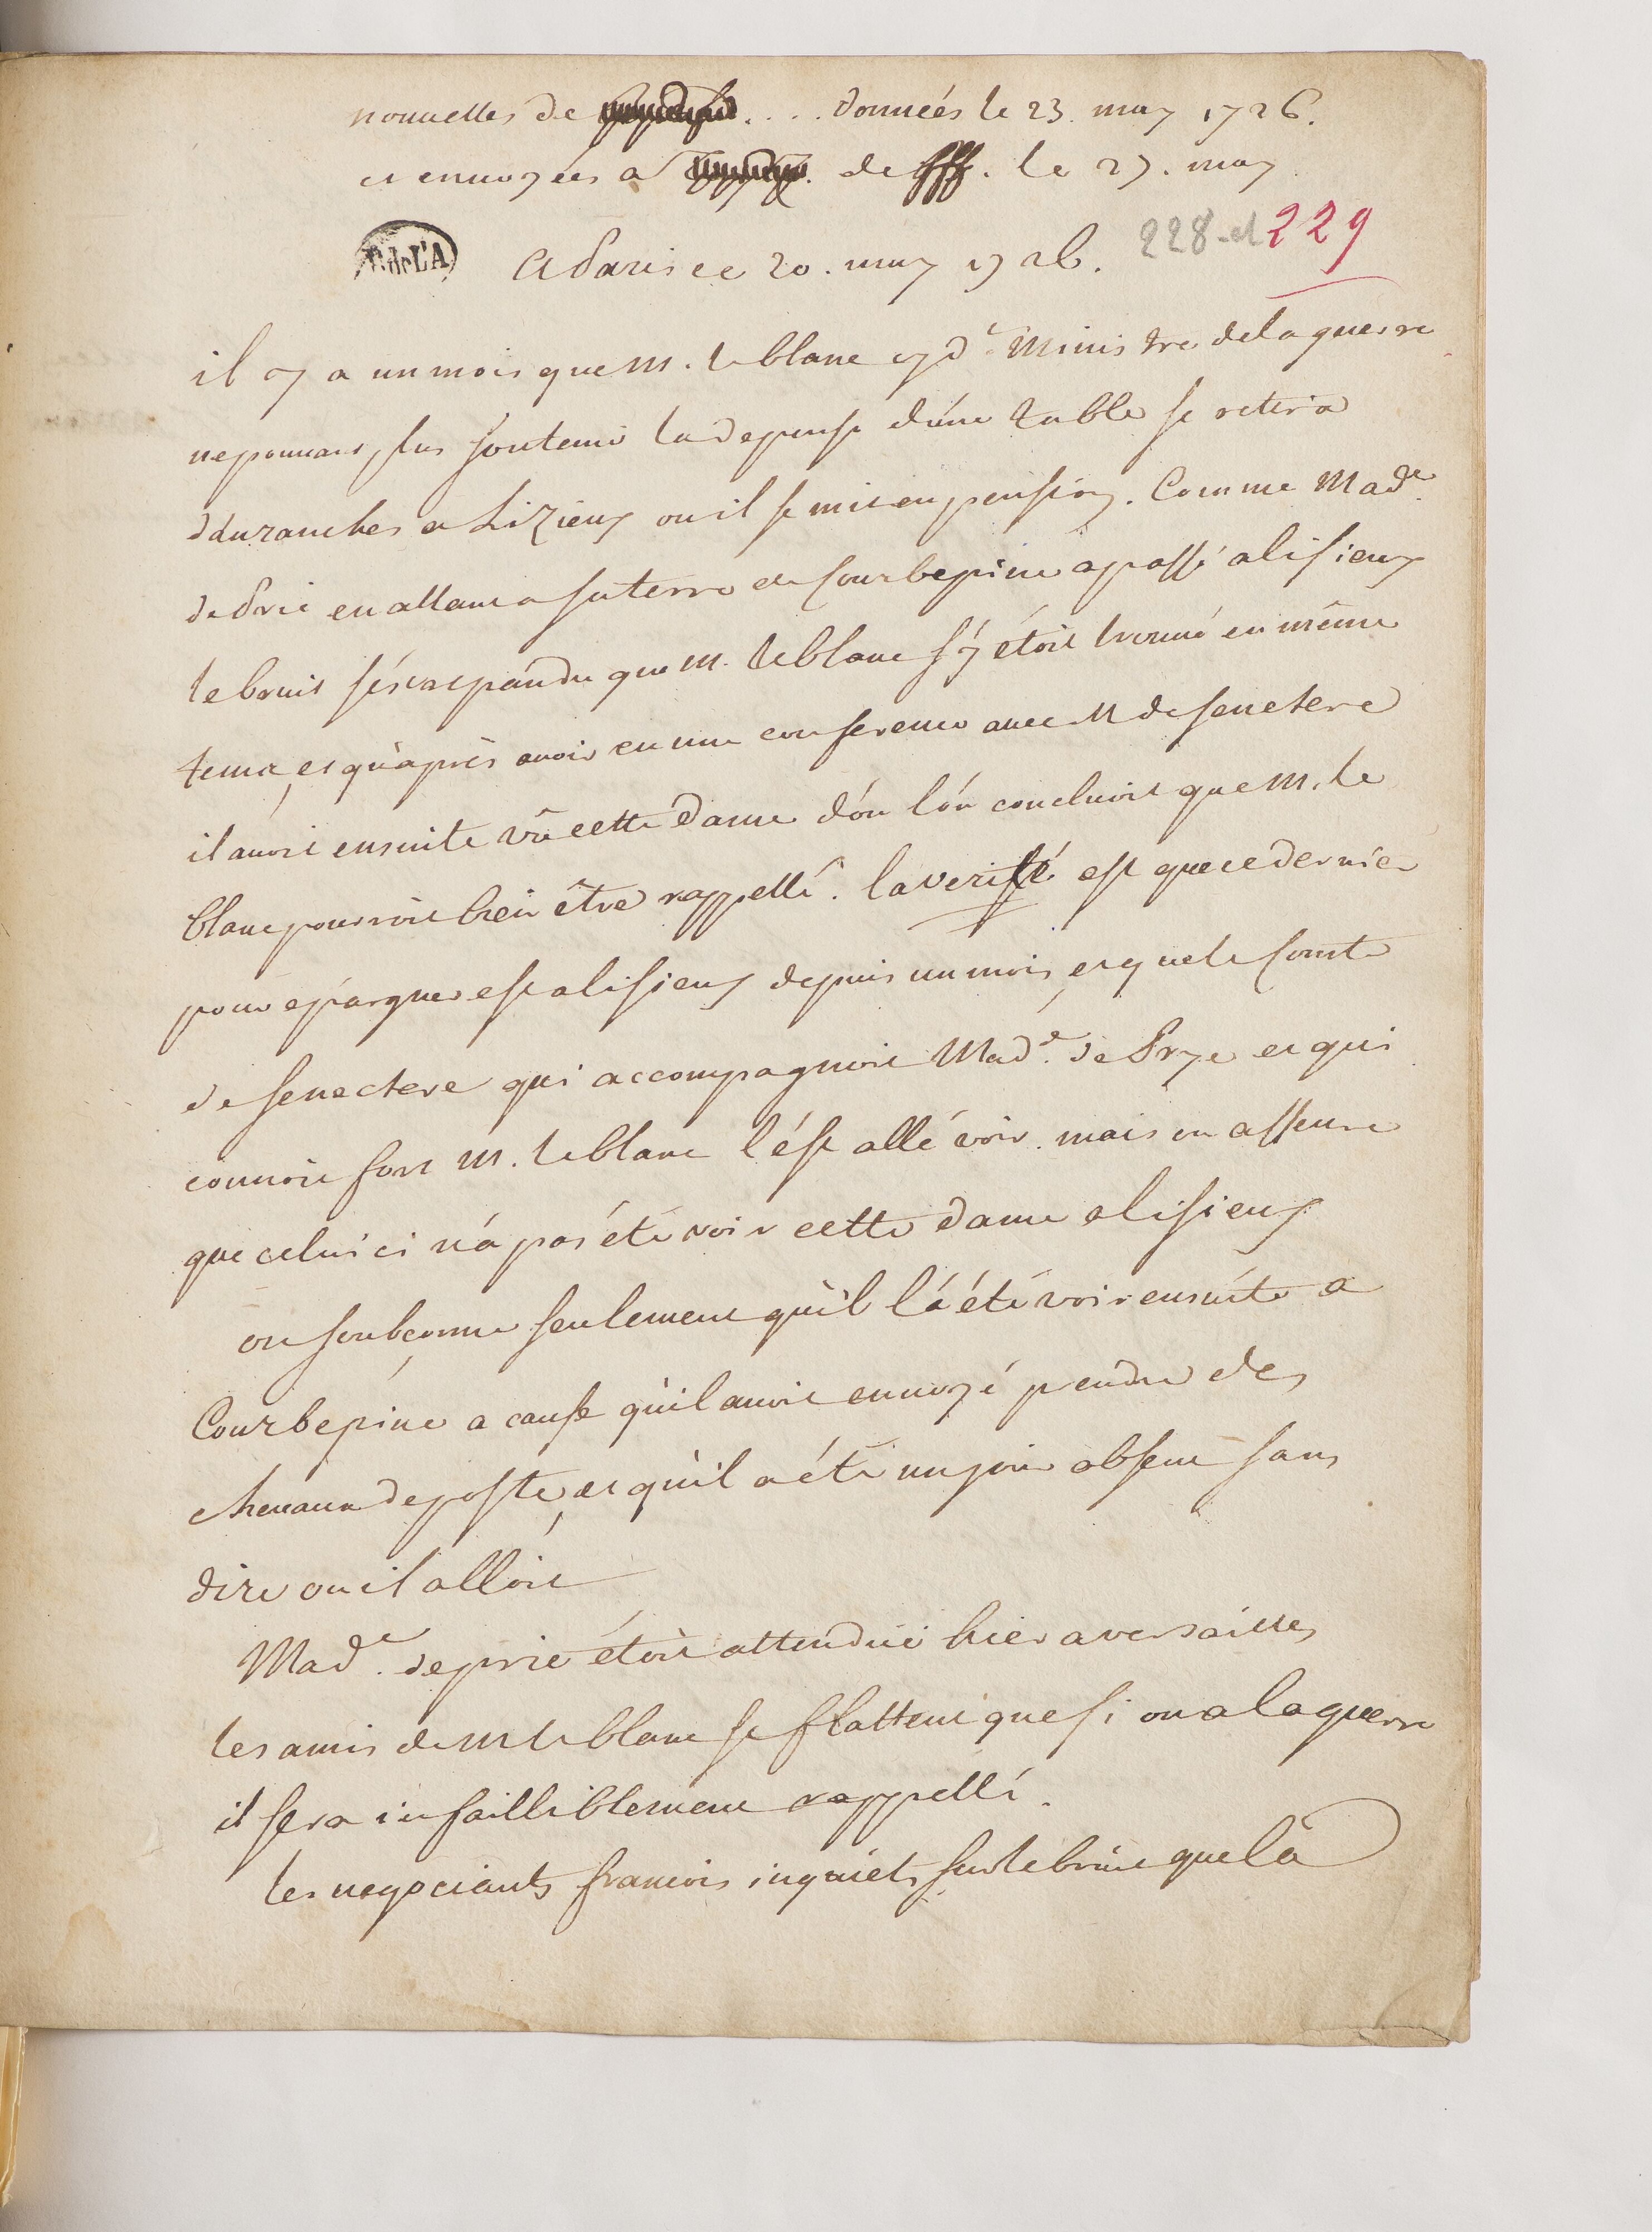 nouuelles de .... donneés le 23. may 1726.
et enuoyées a de le 27. may
B. de L'A
228 - et 229
A Paris ce 20. may 1726.
il y a un mois que M. le blanc cy d.t Ministre de la guerre
ne pouuant plus soutenir la depense d'une table se retira
d'auranches a Lizieux ou il se mit en pension. Comme Mad.e
de Prie en allant a sa terre de Courbepine a passé a lisieux
le bruit s'est repandu que M. le blanc s'y étoit trouué en même
tems, et qu'après auoir eu une conference auec M de senectere
il auoit ensuite vû cette Dame d'ou l'on concluoit que M. le
blanc pourroit bien être rappellé. la verité est que ce dernier
pour epargner est a lisieux depuis un mois, et que le Comte
de senectere qui accompagnoit Mad.e de Prye et qui
connoit fort M. le blanc l'est allé voir. mais on asseure
que celui ci n'a pas été voir cette dame a lisieux
on soubconne seulement qu'il l'a été voir ensuite a
Courbepine a cause qu'il auoit enuoyé prendre des
cheuaux de poste, et qu'il a été un jour absent sans
dire ou il alloit
Mad.e de prie étoit attenduë hier a versailles
les amis de M le blanc se flattent que si on a la guerre
il sera infailliblement rappellé.
les negociants francois inquiets sur le bruit que la